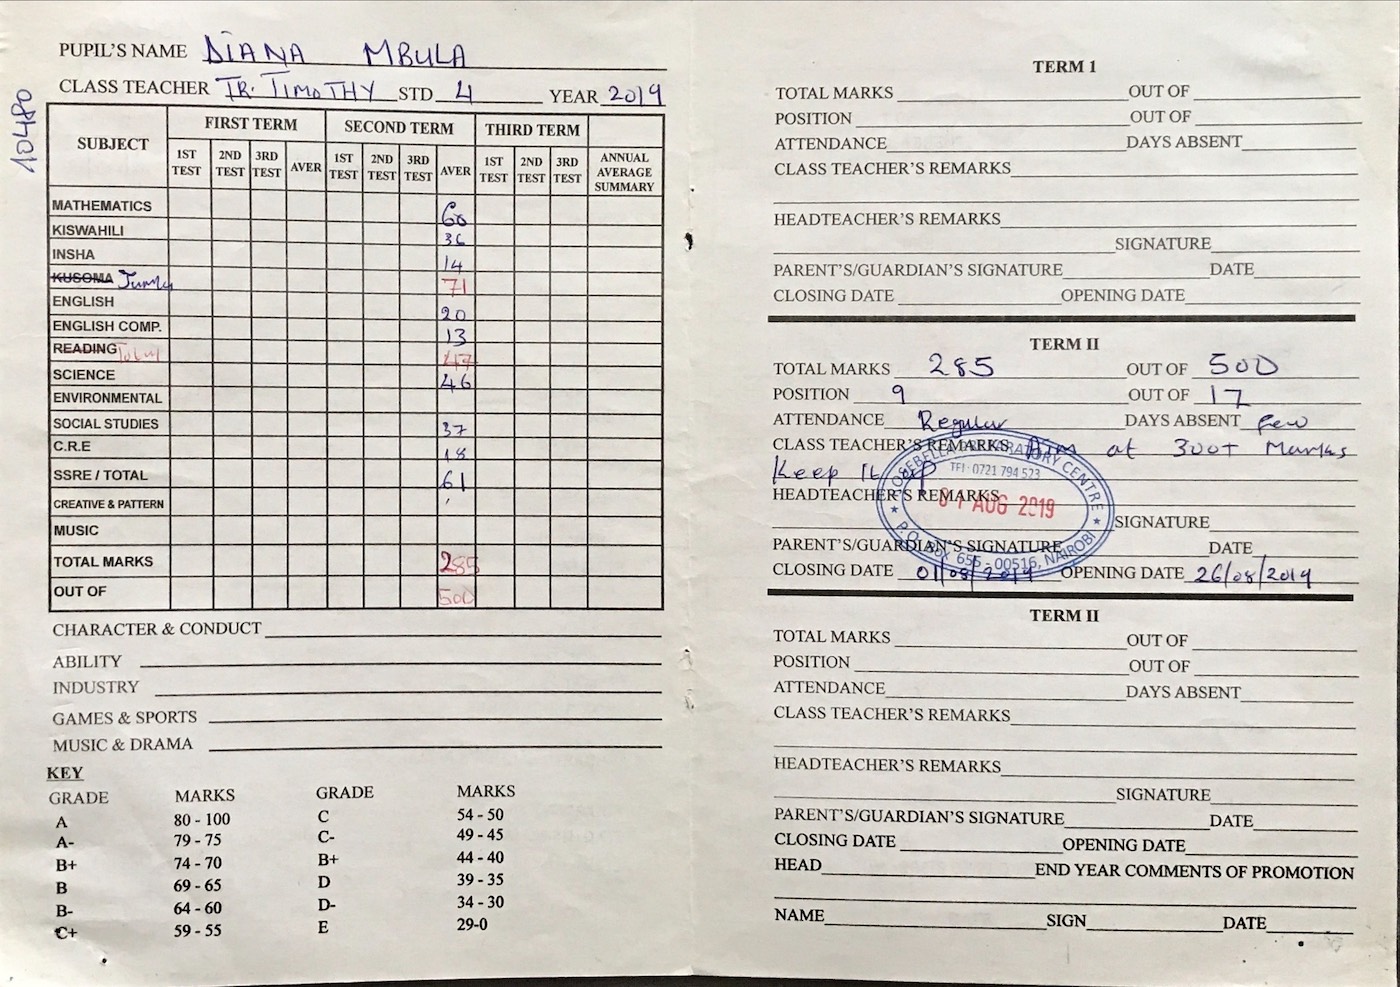 PUPIL'S NAME DIANA MBULA
CLASS TEACHER TR. TIMOTHY STD 4 YEAR 2019
10480
SUBJECT FIRST TERM SECOND TERM THIRD TERM
1ST TEST 2ND TEST 3RD TEST AVER 1ST TEST 2ND TEST 3RD TEST AVER 1ST TEST 2ND TEST 3RD TEST ANNUAL AVERAGE SUMMARY
MATHEMATICS 60
KISWAHILI 36
INSHA 14
KUSOMA 71
ENGLISH 20
ENGLISH COMP. 13
READING Total 47
SCIENCE 46
ENVIRONMENTAL
SOCIAL STUDIES 37
C.R.E 18
SSRE / TOTAL 61
CREATIVE & PATTERN
MUSIC
TOTAL MARKS 285
OUT OF 500
CHARACTER & CONDUCT
ABILITY
INDUSTRY
GAMES & SPORTS
MUSIC & DRAMA
KEY
GRADE MARKS GRADE MARKS
A 80 - 100 C 54 - 50
A- 79 - 75 C- 49 - 45
B+ 74 - 70 B+ 44 - 40
B 69 - 65 D 39 - 35
B- 64 - 60 D- 34 - 30
C+ 59 - 55 E 29-0
TERM 1
TOTAL MARKS OUT OF
POSITION OUT OF
ATTENDANCE DAYS ABSENT
CLASS TEACHER'S REMARKS
HEADTEACHER'S REMARKS
SIGNATURE
PARENT'S/GUARDIAN'S SIGNATURE DATE
CLOSING DATE OPENING DATE
TERM II
TOTAL MARKS 285 OUT OF 500
POSITION 9 OUT OF 17
ATTENDANCE Regular DAYS ABSENT few
CLASS TEACHER'S REMARKS Aim at 300+ Marks
Keep it up
HEADTEACHER'S REMARKS
SIGNATURE
PARENT'S/GUARDIAN'S SIGNATURE DATE
CLOSING DATE 01/08/2019 OPENING DATE 26/08/2019
PREPARATORY CENTRE
TEL: 0721 794 523
01 AUG 2019
P.O. BOX 655 - 00516, NAIROBI
TERM II
TOTAL MARKS OUT OF
POSITION OUT OF
ATTENDANCE DAYS ABSENT
CLASS TEACHER'S REMARKS
HEADTEACHER'S REMARKS
SIGNATURE
PARENT'S/GUARDIAN'S SIGNATURE DATE
CLOSING DATE OPENING DATE
HEAD END YEAR COMMENTS OF PROMOTION
NAME SIGN DATE